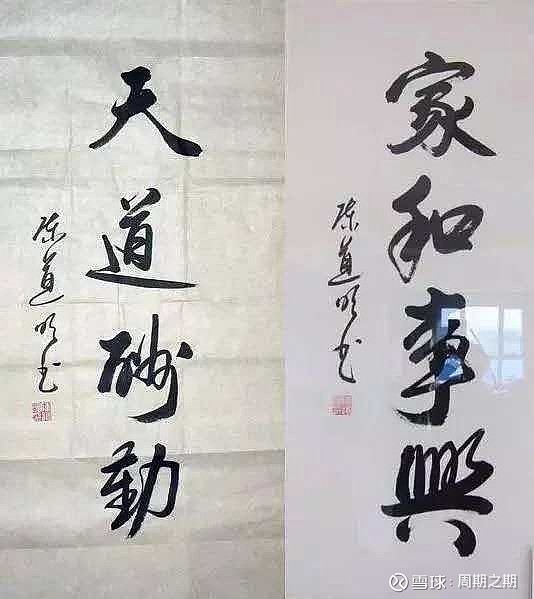 天道酬勤
陈道明书
家和事興
陈道明书
雪球:周期之期